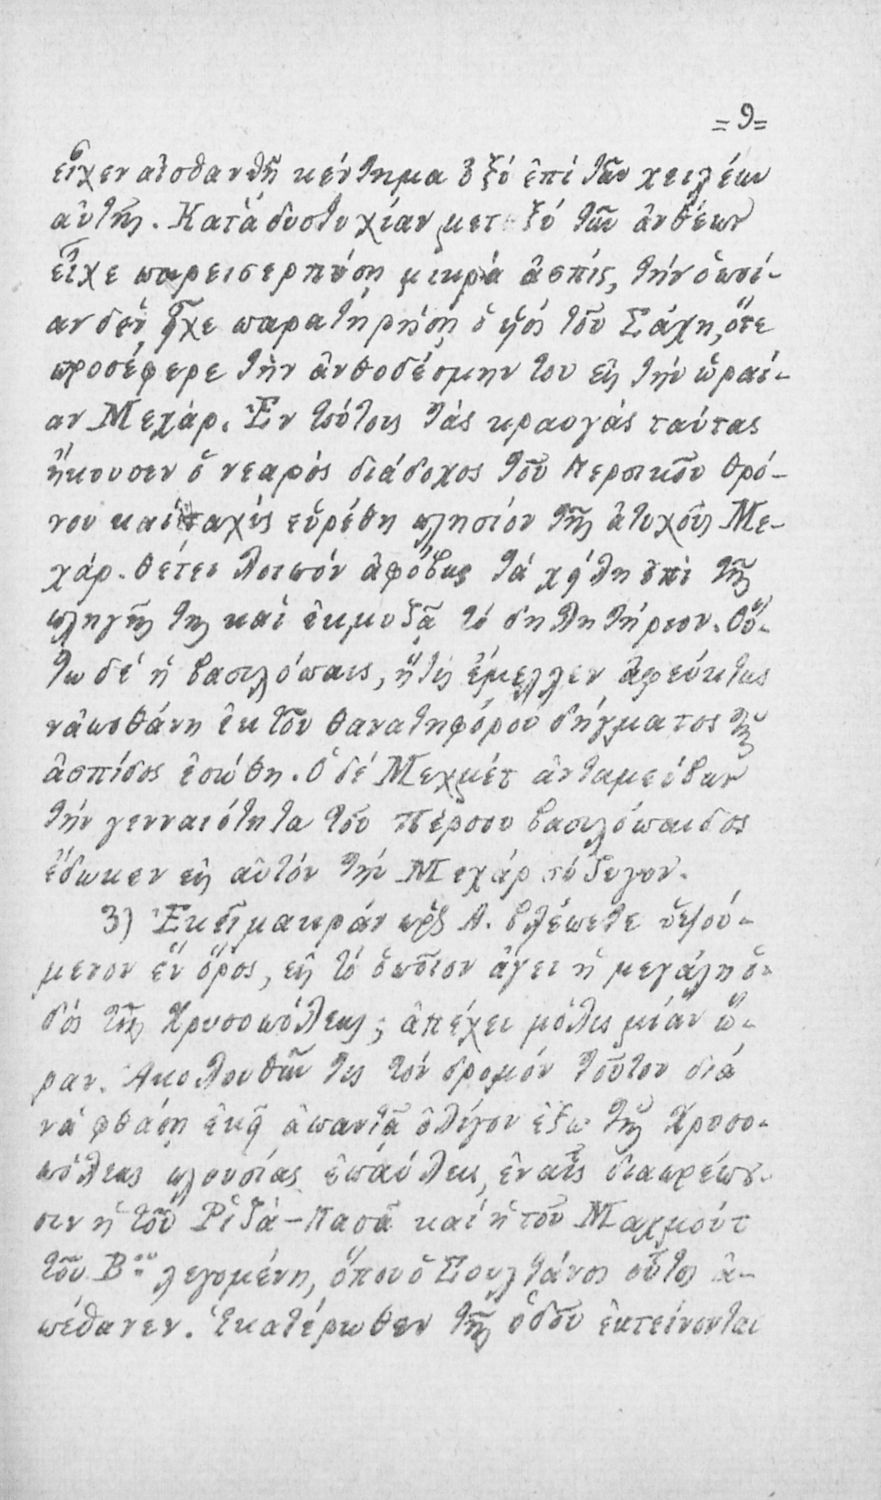 =9=
εἶχεν αἰσθανθῆ κέντημα ὀξύ ἐπί τῶν χειλέων
αὐτῆς. Κατά δυστυχίαν μεταξύ τῶν ἀνθέων
εἶχε παρεισερπύσῃ μικρά ἀσπίς, τήν ὁποί-
αν δέν εἶχε παρατηρήσῃ ὁ υἱός τοῦ Σάχη, ὅτε
προσέφερε τήν ἀνθοδέσμην του εἰς τήν ὡραί-
αν Μεχάρ. Ἐν τούτοις τάς κραυγάς ταύτας
ἤκουσεν ὁ νεαρός διάδοχος τοῦ Περσικοῦ θρό-
νου καί ταχύς εὑρέθη πλησίον τῆς ἀτυχοῦς Με-
χάρ. θέτει λοιπόν ἀφόβως τά χείλη ἐπί τῆς
πληγῆς της καί ἐκμυζᾶ τό δηλητήριον. Οὕ-
τω δέ ἡ βασιλόπαις, ἥτις ἔμελλεν ἀφεύκτως
νά ἀποθάνῃ ἐκ τοῦ θανατηφόρου δήγματος τῆς
ἀσπίδος ἐσώθη. Ὁ δέ Μεχμέτ ἀνταμείβων
τήν γενναιότητα τοῦ Πέρσου βασιλόπαιδος
ἔδωκεν εἰς αὐτόν τήν Μεχάρ σύζυγον.
3) Ἐκεῖ μακράν πρός Α. βλέπετε ὑψού-
μενον ἕν ὄρος, εἰς τό ὁποῖον ἄγει ἡ μεγάλη ὁ-
δός τῆς Χρυσοπόλεως; ἀπέχει μόλις μίαν ὥ-
ραν. Ἀκολουθῶν τις τόν δρομόν τοῦτον διά
νά φθάσῃ ἐκεῖ ἀπαντᾶ ὀλίγον ἔξω τῆς Χρυσο-
πόλεως πλουσίας ἐπαύλεις, ἐν αἷς διαπρέπου-
σιν ἡ τοῦ Ριζά-Πασᾶ καί ἡ τοῦ Μαχμούτ
τοῦ Βου λεγομένη, ὅπου ὁ Σουλτάνος οὗτος ἀ-
πέθανεν. Ἑκατέρωθεν τῆς ὁδοῦ ἐκτείνονται